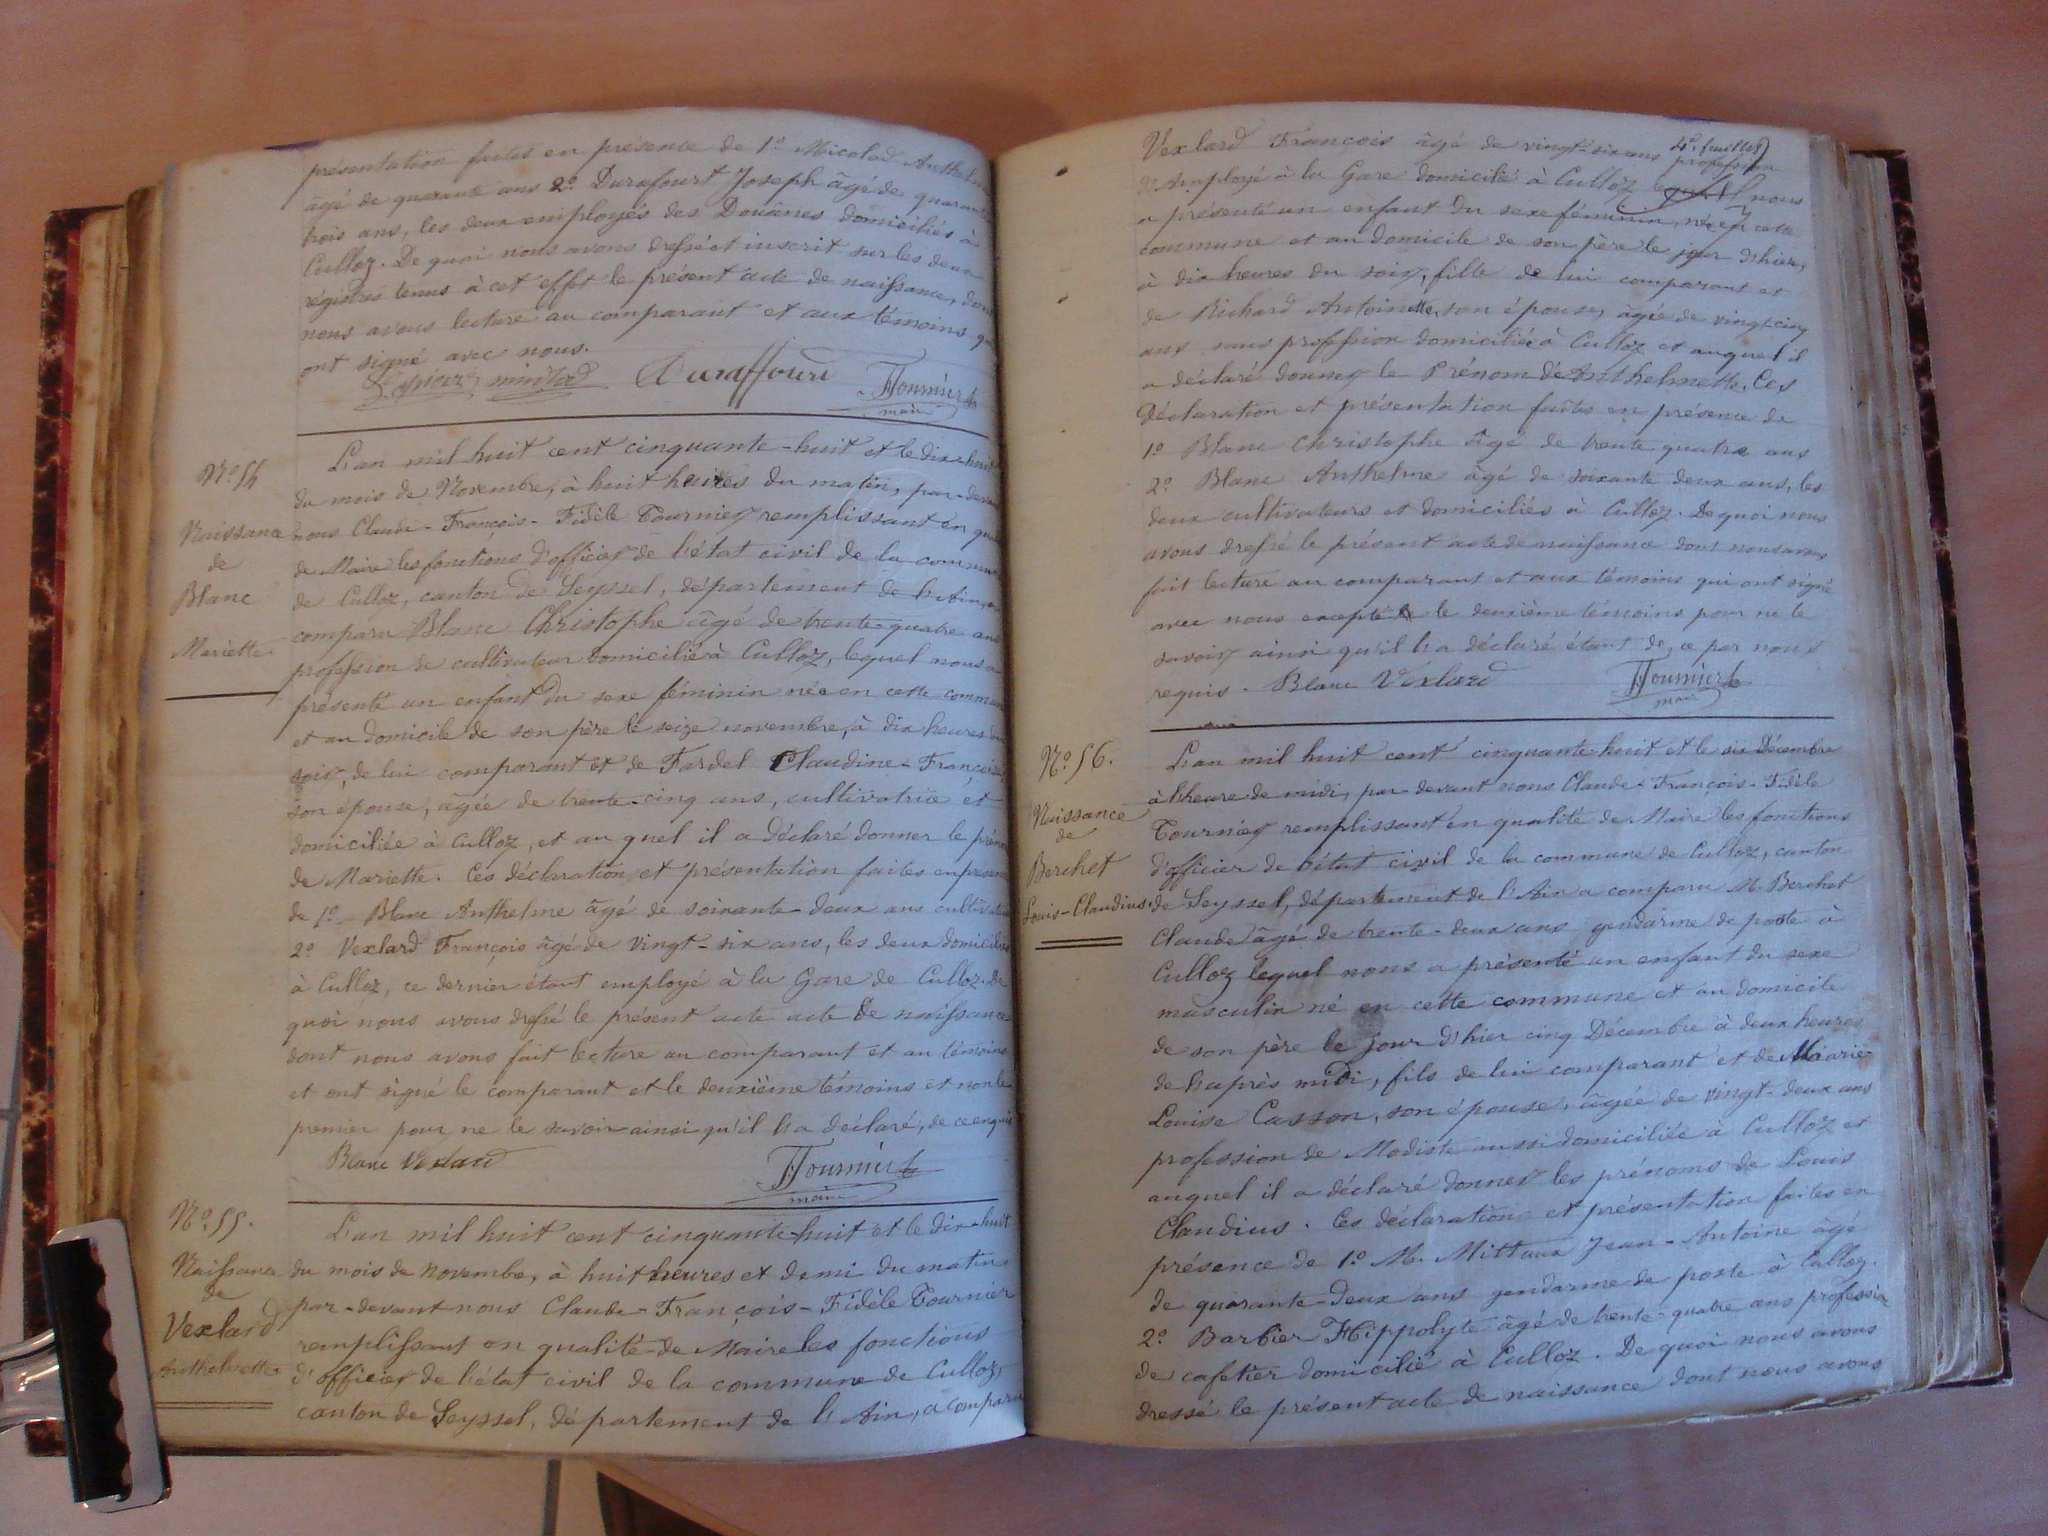 présentation faites en présence de 1º Micolod Anthelme
âgé de quarante ans 2º Durafourt Joseph âgé de quarante
trois ans, les deux employés des Douânes domiciliés à
Culloz. De quoi nous avons dressé et inscrit sur les deux
régistres tenus à cet effet le présent acte de naissance, dont
nous avons lecture au comparant et aux témoins qui
ont signé avec nous.
Duraffourd Tournier fe
maire
Nº 54
Naissance
de
Blanc
Mariette
L'an mil huit cent cinquante-huit et le dix-huit
du mois de Novembre, à huit heures du matin, par-devant
nous Claude-François-Fidèle Tournier remplissant en qualité
de Maire les fonctions d'officier de l'état civil de la commune
de Culloz, canton de Seyssel, département de l'Ain, a
comparu Blanc Christophe âgé de trente-quatre ans
profession de cultivateur domicilié à Culloz, lequel nous a
présenté un enfant du sexe féminin née en cette commune
et au domicile de son père le seize novembre, à dix heures du
soir, de lui comparant et de Fardel Claudine-Françoise
son épouse, âgée de trente-cinq ans, cultivatrice et
domiciliée à Culloz, et au quel il a déclaré donner le prénom
de Mariette. Ces déclaration et présentation faites en présence
de 1º Blanc Anthelme âgé de soixante-deux ans cultivateur
2º Vexlard François âgé de vingt-six ans, les deux domiciliés
à Culloz, ce dernier étant employé à la Gare de Culloz. De
quoi nous avons dressé le présent acte acte de naissance
dont nous avons fait lecture au comparant et au témoins
et ont signé le comparant et le deuxième témoins et non le
premier pour ne le savoir ainsi qu'il l'a déclaré, de ce enquis
Blanc Vexlard Tournier fe
maire
Nº 55.
Naissance
de
Vexlard
Anthelmette
L'an mil huit cent cinquante-huit et le dix-huit
du mois de novembre, à huit heures et demi du matin
par-devant nous Claude-François-Fidèle Tournier
remplissant en qualité de Maire les fonctions
d'officier de l'état civil de la commune de Culloz,
canton de Seyssel, département de l'Ain, a comparu
4e feuillet
Vexlard François âgé de vingt-six ans profession
d'employé à la Gare domicilié à Culloz lequel nous
a présenté un enfant du sexe féminin, née en cette
commune et au domicile de son père le jour d'hier,
à dix heures du soir, fille de lui comparant et
de Richard Antoinette, son épouse, âgée de vingt-cinq
ans sans profession domiciliée à Culloz et auquel il
a déclaré donner le Prénom de Anthelmette. Ces
déclaration et présentation faites en présence de
1º Blanc Christophe âgé de trente quatre ans
2º Blanc Anthelme âgé de soixante deux ans, les
deux cultivateurs et domiciliés à Culloz. De quoi nous
avons dressé le présent acte de naissance dont nous avons
fait lecture au comparant et aux témoins qui ont signé
avec nous excepté le deuxième témoins pour ne le
savoir ainsi qu'il l'a déclaré étant de ce par nous
requis. Blanc Vexlard Tournier fe
maire
Nº 56.
Naissance
de
Berchet
Louis-Claudius
L'an mil huit cent cinquante-huit et le six Décembre
à l'heure de midi, par-devant nous Claude-François-Fidèle
Tournier remplissant en qualité de Maire les fonctions
d'officier de l'état civil de la commune de Culloz, canton
de Seyssel, département de l'Ain a comparu M. Berchet
Claude âgé de trente-deux ans gendarme de poste à
Culloz lequel nous a présenté un enfant du sexe
masculin né en cette commune et au domicile
de son père le jour d'hier cinq Décembre à deux heures
de l'après midi, fils de lui comparant et de Marie
Louise Casson, son épouse, âgée de vingt-deux ans
profession de Modiste aussi domiciliée à Culloz et
auquel il a déclaré donner les prénoms de Louis
Claudius. Ces déclaration et présentation faites en
présence de 1º M. Mittaux Jean-Antoine âgé
de quarante-deux ans gendarme de poste à Culloz.
2º Barbier Hippolyte âgé de trente-quatre ans profession
de cafetier domicilié à Culloz. De quoi nous avons
dressé le présent acte de naissance dont nous avons